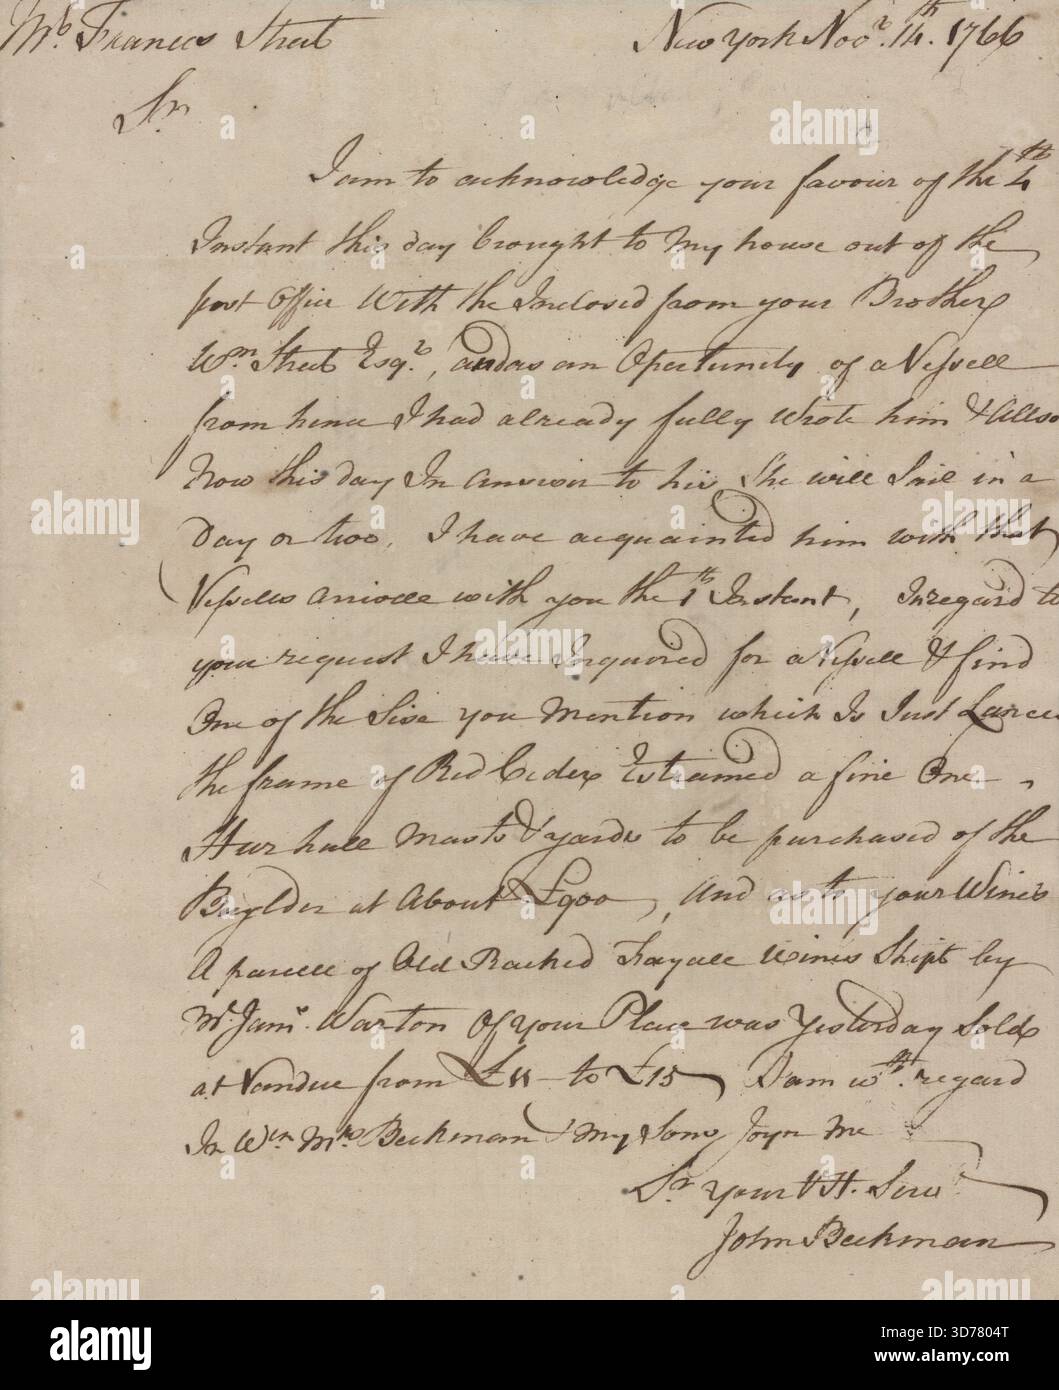 Mr. Francis Street New York Novr. 14th. 1766
Sr
I am to acknowledge your favour of the 4th
Instant this day brought to my house out of the
post Office With the Inclosed from your Brother
Wm. Street Esqr., and as an Opertunity of a Vessell
from hence I had already fully Wrote him & Allso
Now this day In answer to his She will Sail in a
Day or two. I have acquainted him with that
Vessells arivall with you the 1th Instant, Inregard to
your request I have Inquired for a Vessell & find
One of the Sise you Mention which Is Just
the frame of Red Ceder Esteamed a fine One
Hur hull Masts & yards to be purchased of the
Buylder at About £900, And as to your Wines
A parcell of Old Racked Fayall Wines Shipt by
Mr. Jams. Warton Of your Place was Yesterday Sold
at Vandue from £11 to £15 I am wth. regard
In Wch Mrs Beekman & my Sons Joyn Me
Sr your V H. Servt
John Beekman
alamy
a
alamy
Image ID: 3D7804T
www.alamy.com